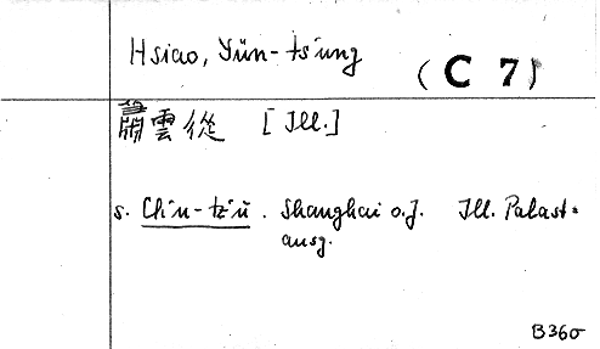 Hsiao, Yün-ts'ung
(C 7)
蕭雲從 [Ill.]
s. Ch'u-tz'ŭ. Shanghai o.J. Ill. Palast-
ausg.
B360